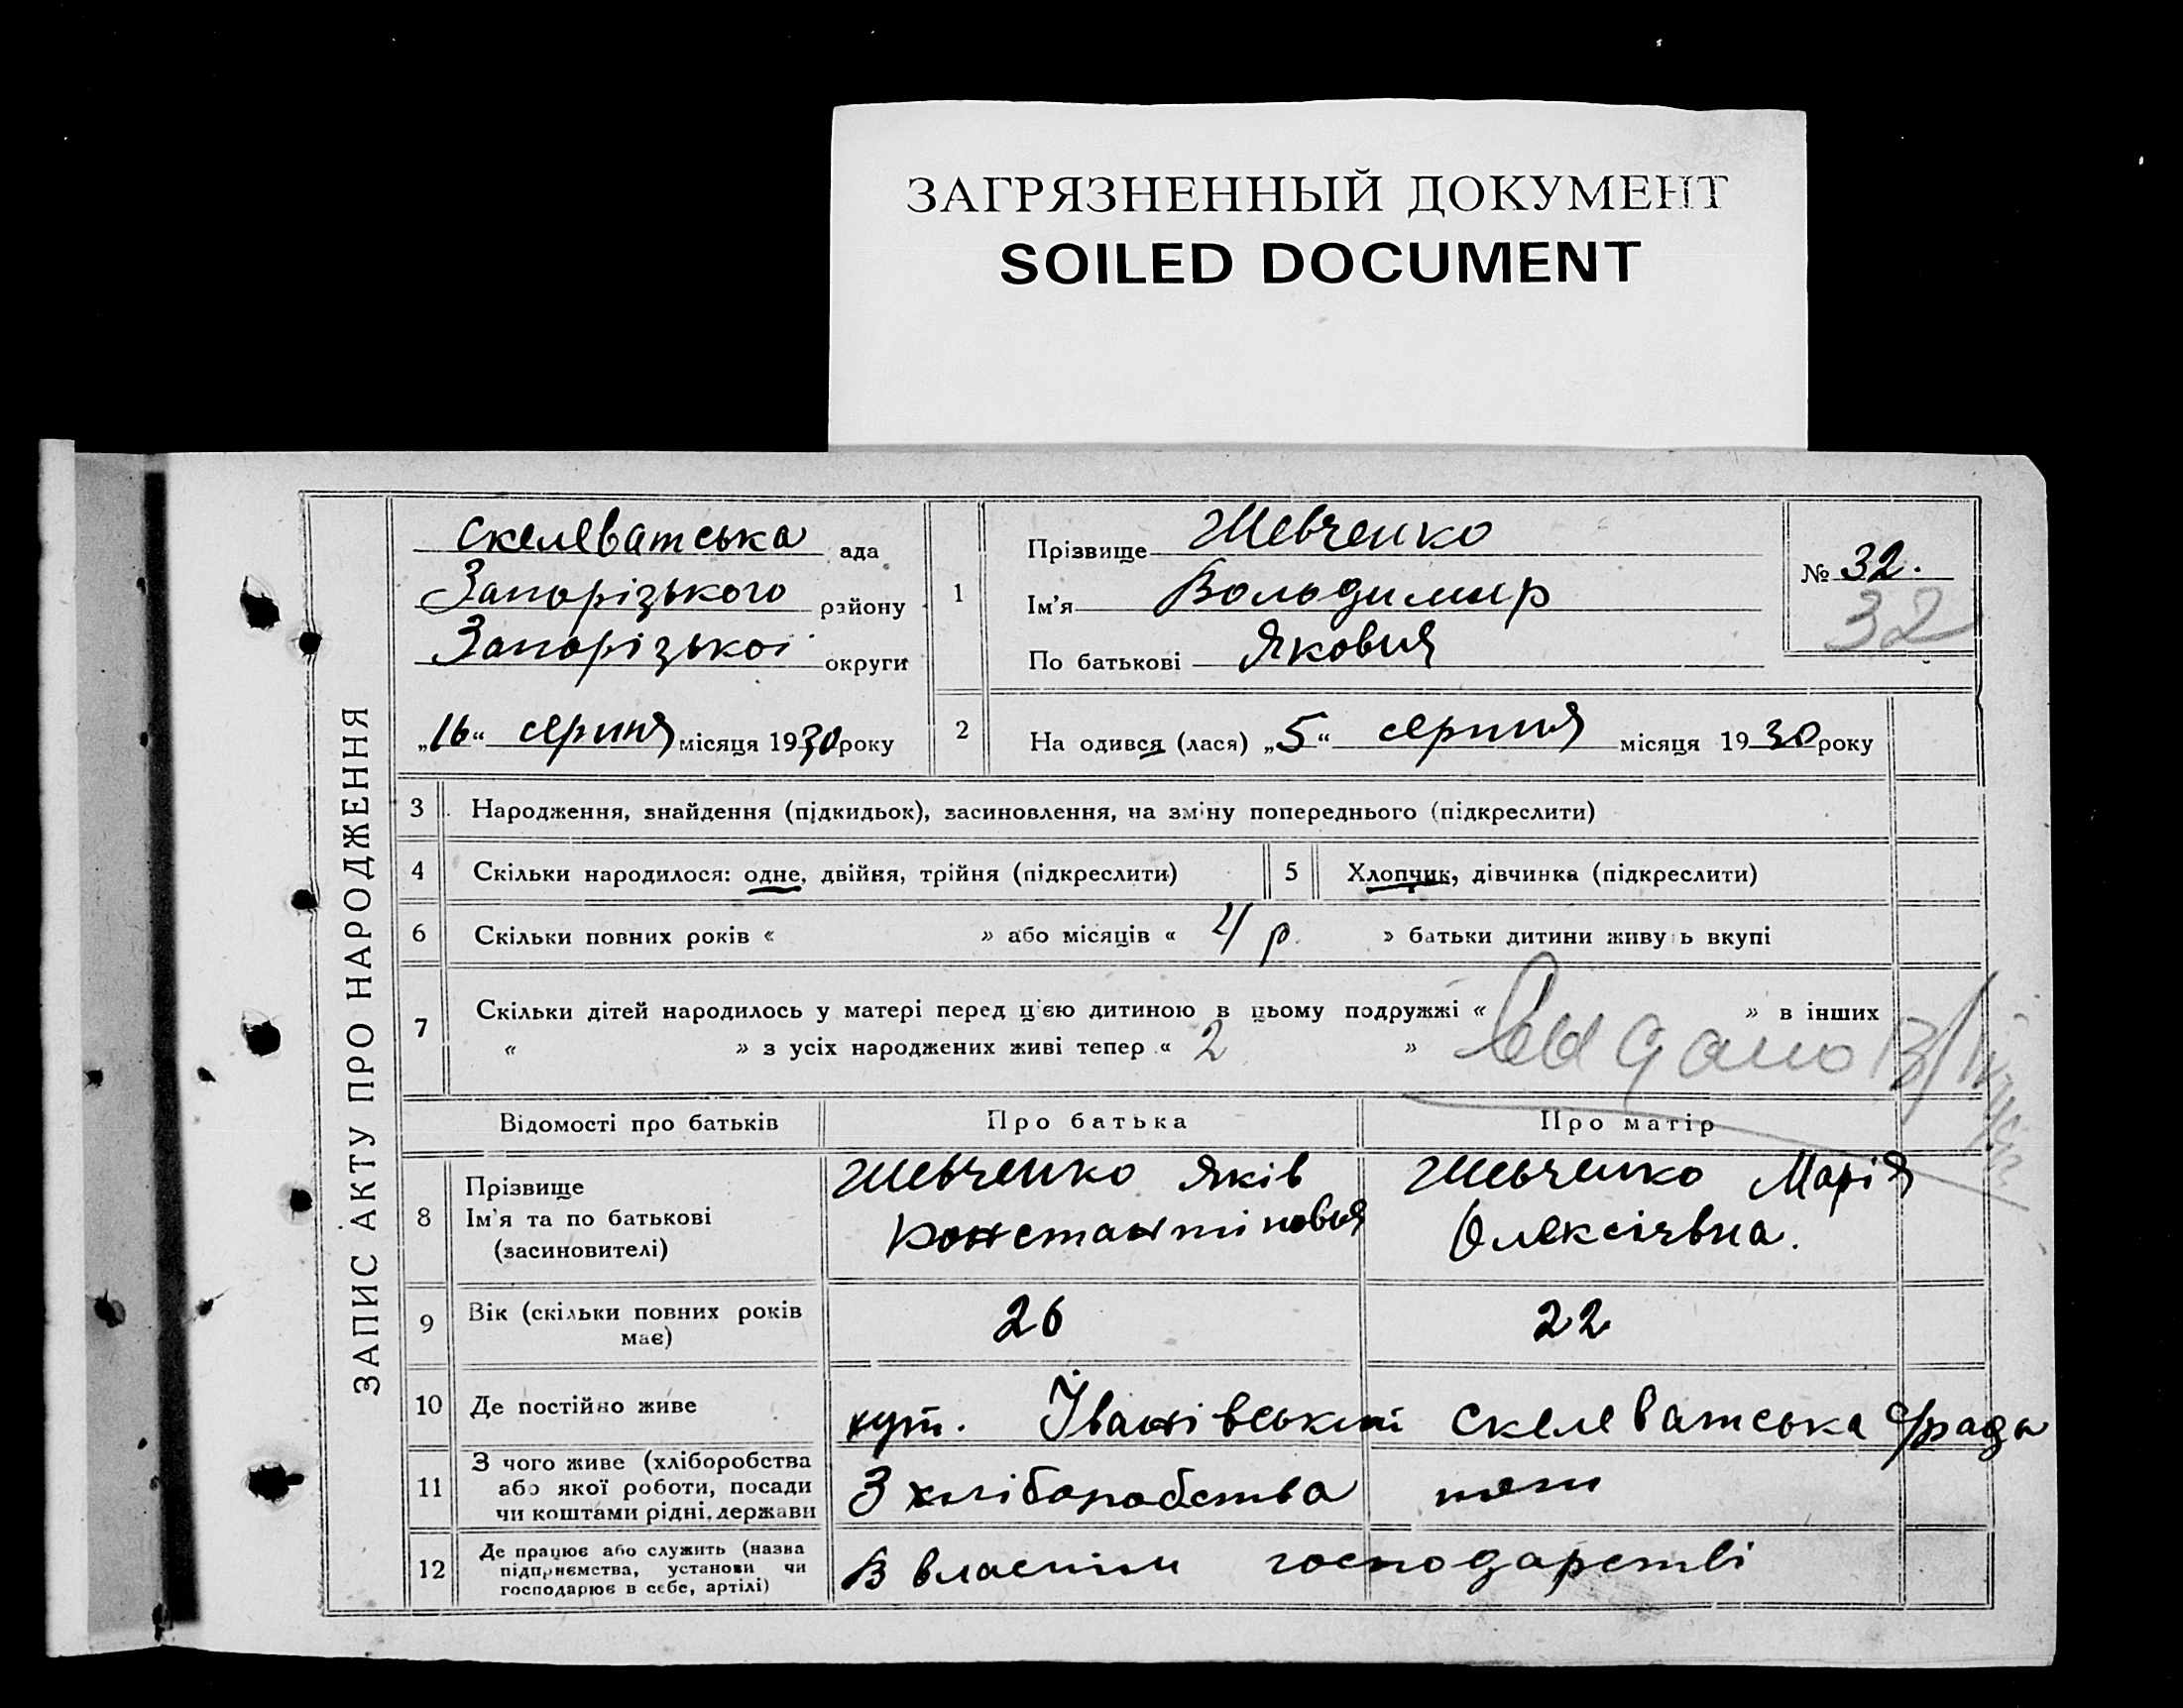 ЗАГРЯЗНЕННЫЙ ДОКУМЕНТ
SOILED DOCUMENT
ЗАПИС АКТУ ПРО НАРОДЖЕННЯ
Скелеватська ада
Запорізького району
Запорізької округи
„16“ серпня місяця 1930 року
1
Прізвище Шевченко
Ім'я Вольодимир
По батькові Якович
№ 32.
32
2 На одився (лася) „5“ серпня місяця 1930 року
3 Народження, знайдення (підкидьок), засиновлення, на зміну попереднього (підкреслити)
4 Скільки народилося: одне, двійня, трійня (підкреслити) 5 Хлопчик, дівчинка (підкреслити)
6 Скільки повних років « » або місяців « 4 р. » батьки дитини живу ь вкупі
7 Скільки дітей народилось у матері перед цією дитиною в цьому подружжі « » в інших
« » з усіх народжених живі тепер « 2 »
Выдано
Відомості про батьків Про батька Про матір
8 Прізвище
Ім'я та по батькові
(засиновителі)
Шевченко Яків
Константінович
Шевченко Марія
Олексіївна.
9 Вік (скільки повних років
має)
26 22
10 Де постійно живе хут. Іванівський Скелеватська с/рада
11 З чого живе (хліборобства
або якої роботи, посади
чи коштами рідні, держави
З хліборобства
12 Де працює або служить (назва
підприємства, установи чи
господарює в себе, артілі)
В власнім господарстві